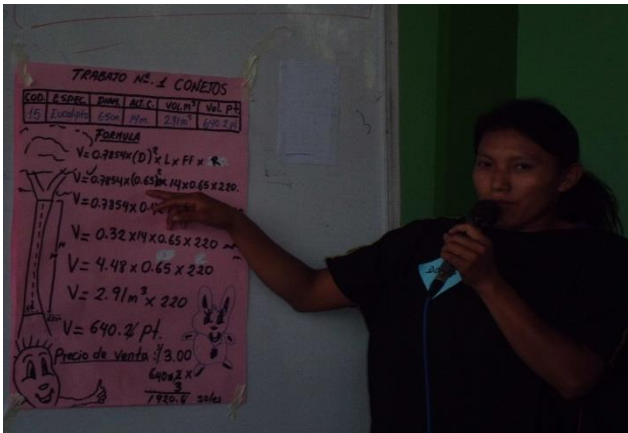 TRABAJO Nº.1 CONEJOS
COD. ESPEC. DIAM. ALT.C. VOL.M³ VOL. Pt.
15 Eucalipto 65cm 14m. 2.91m³ 640.2 pt
FORMULA
V=0.7854x(D)²x L x FF x
V=0.7854x(0.65)²x14x0.65x220.
V=0.7854x0.
V= 0.32x14x0.65x220
V= 4.48x0.65x220
V= 2.91m³x220
V= 640.2 pt.
Precio de venta: 3.00
640.2 x
3
1920.6 soles